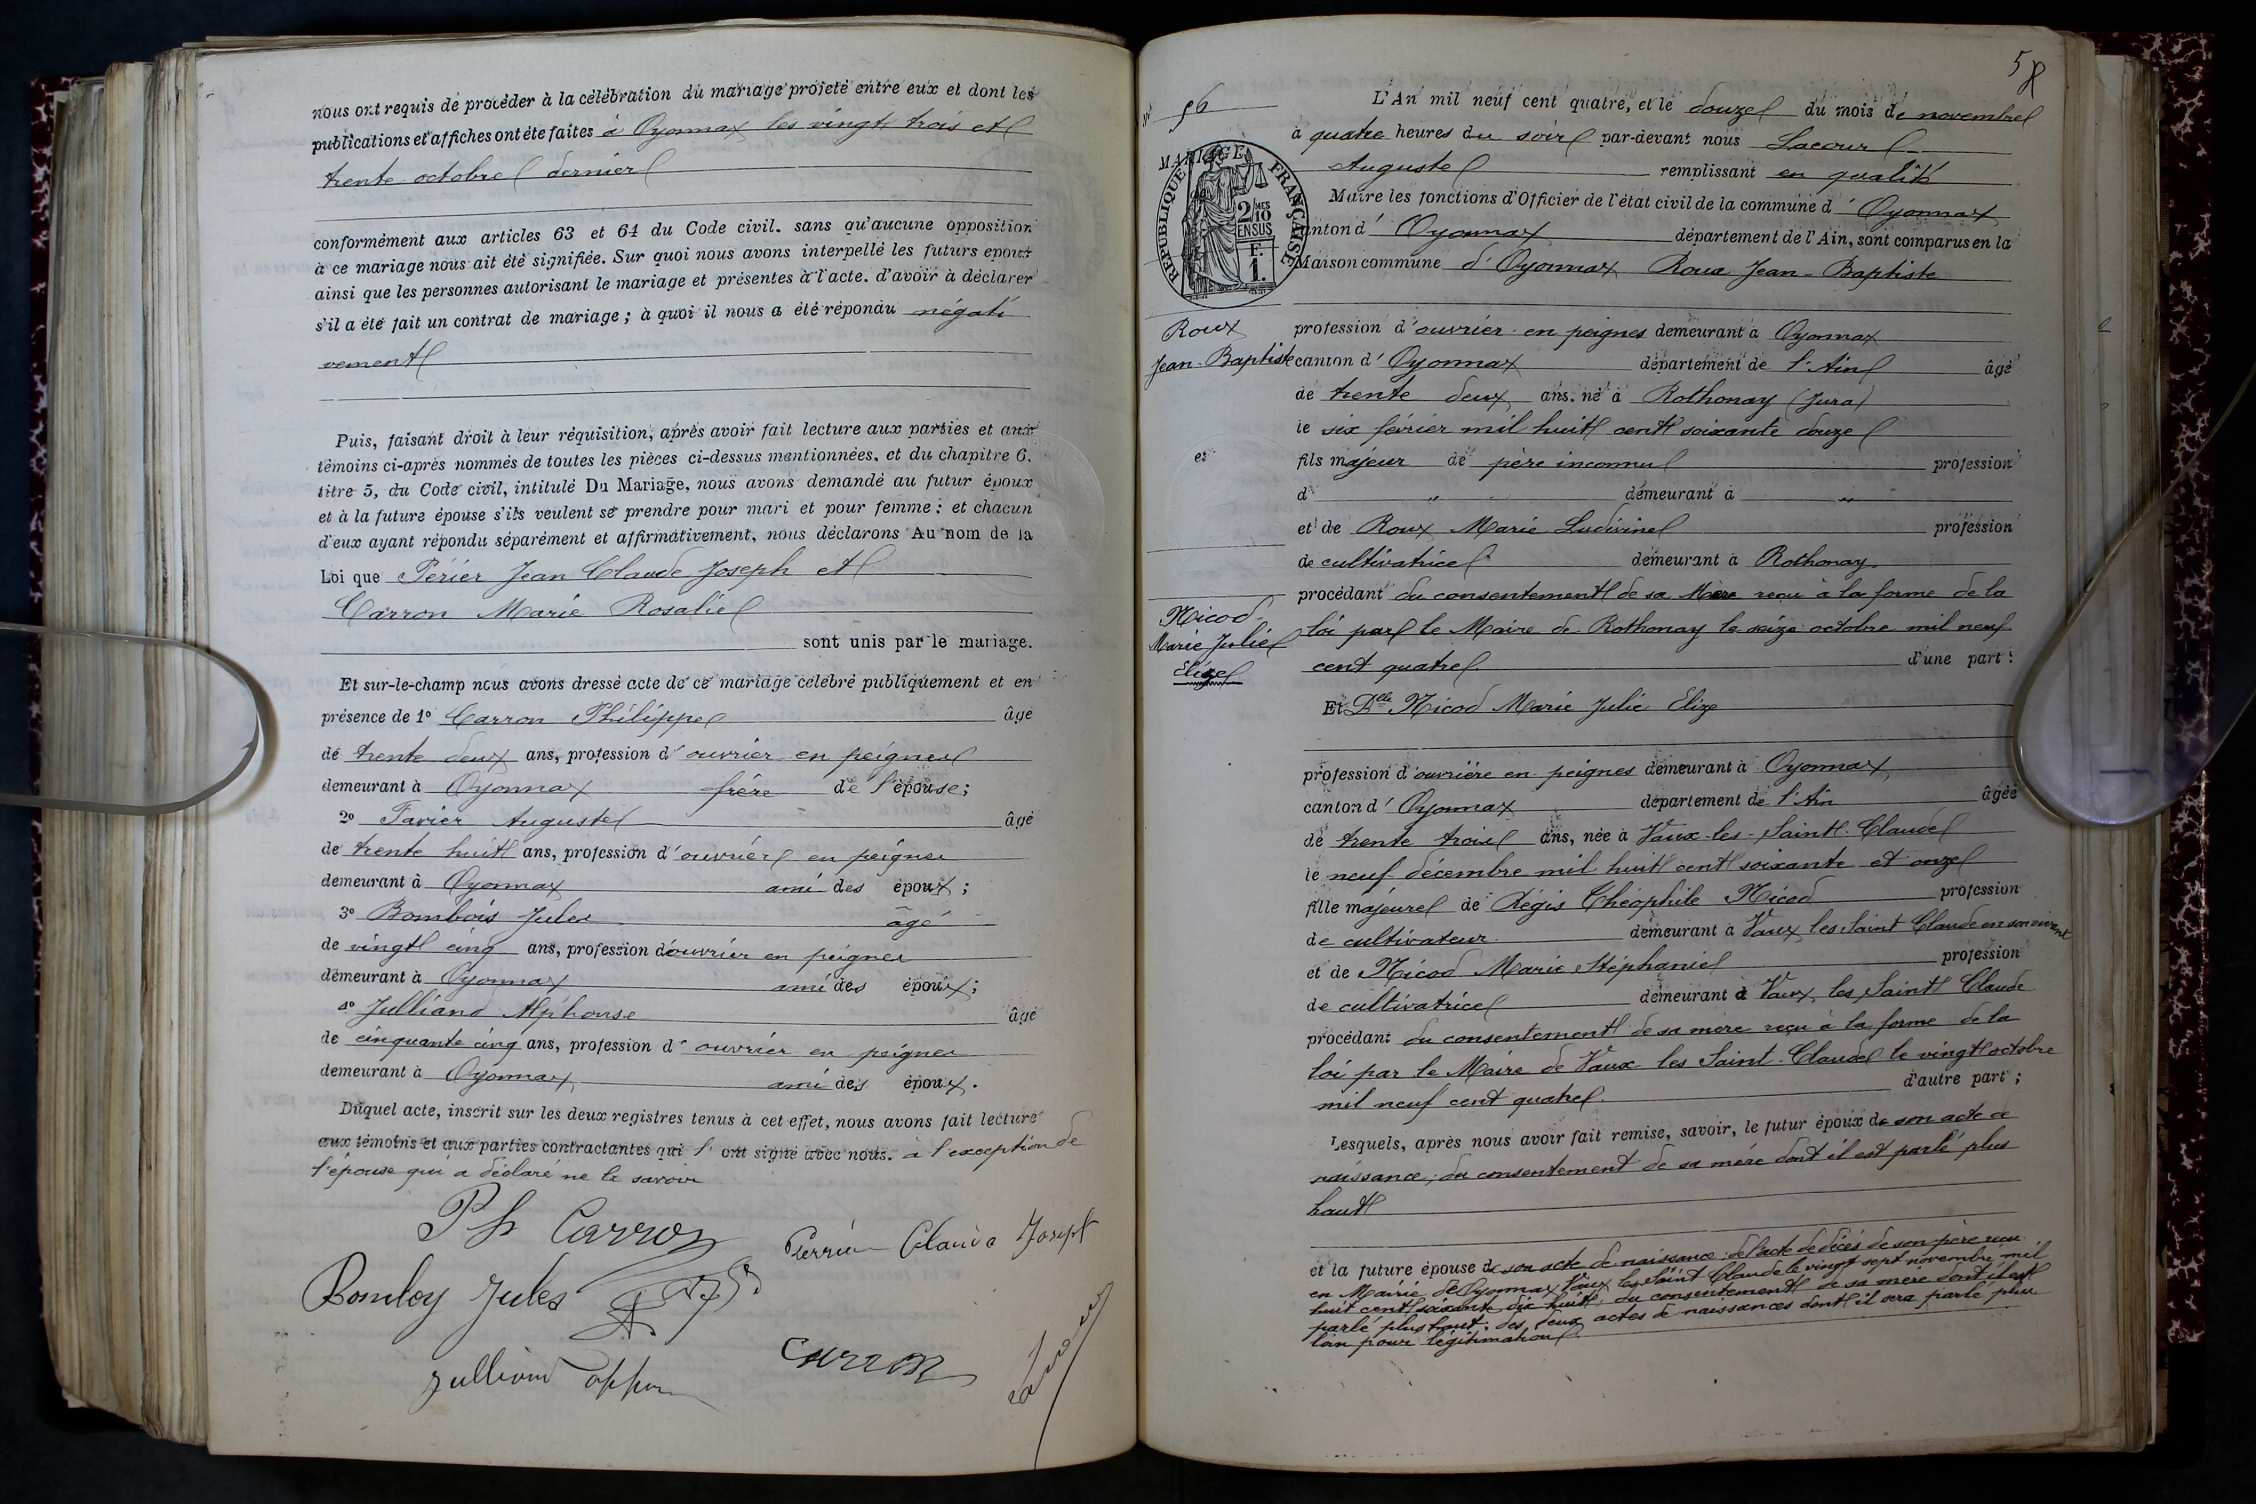 nous ont requis de procéder à la célébration du mariage projeté entre eux et dont les
publications et affiches ont été faites à Oyonnax les vingt trois et
trente octobre dernier
conformément aux articles 63 et 64 du Code civil. sans qu'aucune opposition
à ce mariage nous ait été signifiée. Sur quoi nous avons interpellé les futurs epoux
ainsi que les personnes autorisant le mariage et présentes à l'acte. d'avoir à déclarer
s'il a été fait un contrat de mariage ; à quoi il nous a été répondu négati
vement
Puis, faisant droit à leur réquisition, après avoir fait lecture aux parties et aux
témoins ci-après nommés de toutes les pièces ci-dessus mentionnées, et du chapitre 6.
titre 5, du Code civil, intitulé Du Mariage, nous avons demandé au futur époux
et à la future épouse s'ils veulent se prendre pour mari et pour femme ; et chacun
d'eux ayant répondu séparément et affirmativement, nous déclarons Au nom de la
Loi que Périer Jean Claude Joseph et
Carron Marie Rosalie
sont unis par le mariage.
Et sur-le-champ nous avons dressé acte de ce mariage célébré publiquement et en
présence de 1° Carron Philippe âge
de trente deux ans, profession d'ouvrier en peignes
demeurant à Oyonnax frère de l'épouse ;
2° Favier Auguste âgé
de trente huit ans, profession d'ouvrier en peignes
demeurant à Oyonnax ami des époux ;
3° Bombois Jules âgé
de vingt cinq ans, profession d'ouvrier en peignes
demeurant à Oyonnax ami des époux ;
4° Julliand Alphonse âgé
de cinquante cinq ans, profession d'ouvrier en peignes
demeurant à Oyonnax ami des époux.
Duquel acte, inscrit sur les deux registres tenus à cet effet, nous avons fait lecture
aux témoins et aux parties contractantes qui l'ont signé avec nous. à l'exception de
l'épouse qui a déclaré ne le savoir
Ph Carron
Claude Joseph
Jules
Julliand
Carron
58
N° 56
L'An mil neuf cent quatre, et le douze du mois de novembre
à quatre heures du soir par-devant nous Lacour
Auguste remplissant en qualité
Maire les fonctions d'Officier de l'état civil de la commune d'Oyonnax
canton d'Oyonnax département de l'Ain, sont comparus en la
Maison commune d'Oyonnax Roux Jean-Baptiste
MARIAGE
RÉPUBLIQUE FRANÇAISE
2 MES 10
EN SUS
F.
1.
Roux
Jean-Baptiste
et
Nicod
Marie Julie
Elize
profession d'ouvrier en peignes demeurant à Oyonnax
canton d'Oyonnax département de l'Ain âgé
de trente deux ans. né à Rothonay (Jura)
le six février mil huit cent soixante douze
fils majeur de père inconnu profession
d " demeurant à "
et de Roux Marie Ludivine profession
de cultivatrice demeurant à Rothonay
procédant du consentement de sa Mère reçu à la forme de la
loi par le Maire de Rothonay le seize octobre mil neuf
cent quatre d'une part :
Et Dlle Nicod Marie Julie Elize
profession d'ouvrière en peignes demeurant à Oyonnax
canton d'Oyonnax département de l'Ain âgée
de trente trois ans, née à Vaux-les-Saint-Claude
le neuf décembre mil huit cent soixante et onze
fille majeure de Régis Théophile Nicod profession
de cultivateur demeurant à Vaux les Saint Claude en son vivant
et de Nicod Marie Stéphanie profession
de cultivatrice demeurant à Vaux les Saint Claude
procédant du consentement de sa mère reçu à la forme de la
loi par le Maire de Vaux les Saint-Claude le vingt octobre
mil neuf cent quatre d'autre part ;
Lesquels, après nous avoir fait remise, savoir, le futur époux de son acte de
naissance ; du consentement de sa mère dont il est parlé plus
haut
et la future épouse de son acte de naissance ; de l'acte de décès de son père reçu
en Mairie de Oyonnax Vaux les Saint Claude le vingt sept novembre mil
huit cent soixante dix huit ; du consentement de sa mère dont il est
parlé plus haut ; des deux actes de naissances dont il sera parlé plus
loin pour légitimation